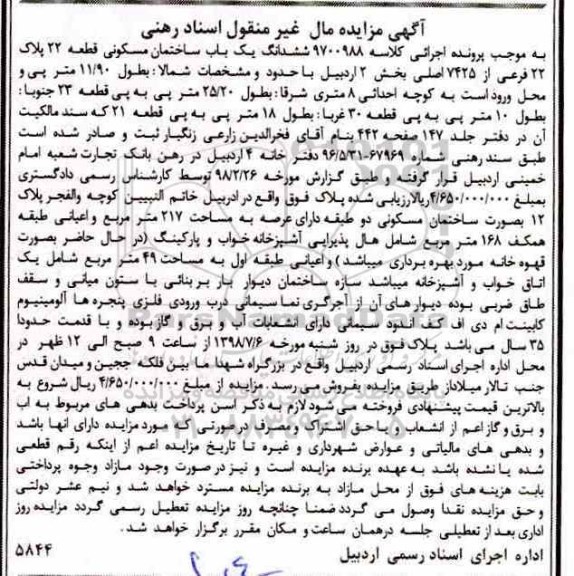 آگهی مزایده مال غیر منقول اسناد رهنی
به موجب پرونده اجرائی کلاسه ۹۷۰۰۹۸۸ ششدانگ یک باب ساختمان مسکونی قطعه ۲۲ پلاک
۲۲ فرعی از ۷۴۲۵ اصلی بخش ۲ اردبیل با حدود و مشخصات شمالا: بطول ۱۱/۹۰ متر پی و
محل ورود است به کوچه احداثی ۸ متری شرقا: بطول ۲۵/۲۰ متر پی به پی قطعه ۲۳ جنوبا:
بطول ۱۰ متر پی به پی قطعه ۳۰ غربا: بطول ۱۸ متر پی به پی قطعه ۲۱ که سند مالکیت
آن در دفتر جلد ۱۴۷ صفحه ۴۴۲ بنام آقای فخرالدین زارعی زنگبار ثبت و صادر شده است
طبق سند رهنی شماره ۶۷۹۶۹-۹۶/۵/۳۱ دفتر خانه ۴ اردبیل در رهن بانک تجارت شعبه امام
خمینی اردبیل قرار گرفته و طبق گزارش مورخه ۹۸/۲/۲۶ توسط کارشناس رسمی دادگستری
بمبلغ ۴/۶۵۰/۰۰۰/۰۰۰ ریال ارزیابی شده پلاک فوق واقع در اردبیل خاتم النبیین کوچه والفجر پلاک
۱۲ بصورت ساختمان مسکونی دو طبقه دارای عرصه به مساحت ۲۱۷ متر مربع و اعیانی طبقه
همکف ۱۶۸ متر مربع شامل هال پذیرایی آشپزخانه خواب و پارکینگ (در حال حاضر بصورت
قهوه خانه مورد بهره برداری میباشد) و اعیانی طبقه اول به مساحت ۴۹ متر مربع شامل یک
اتاق خواب و آشپزخانه میباشد سازه ساختمان دیوار بار بر بنائی با ستون میانی و سقف
طاق ضربی بوده دیوار های آن از آجرگری نما سیمانی درب ورودی فلزی پنجره ها آلومینیوم
کابینت ام دی اف کف اندود سیمانی دارای انشعابات آب و برق و گاز بوده و با قدمت حدودا
۳۵ سال می باشد پلاک فوق در روز شنبه مورخه ۱۳۹۸/۷/۶ از ساعت ۹ صبح الی ۱۲ ظهر در
محل اداره اجرای اسناد رسمی اردبیل واقع در بزرگراه شهدا ما بین فلکه ججین و میدان قدس
جنب تالار میلاد از طریق مزایده بفروش می رسد. مزایده از مبلغ ۴/۶۵۰/۰۰۰/۰۰۰ ریال شروع به
بالاترین قیمت پیشنهادی فروخته می شود لازم به ذکر است پرداخت بدهی های مربوط به اب
و برق و گاز اعم از انشعاب و یا حق اشتراک و مصرف در صورتی که مورد مزایده دارای انها باشد
و بدهی های مالیاتی و عوارض شهرداری و غیره تا تاریخ مزایده اعم از اینکه رقم قطعی
شده یا نشده باشد به عهده برنده مزایده است و نیز در صورت وجود مازاد وجوه پرداختی
بابت هزینه های فوق از محل مازاد به برنده مزایده مسترد خواهد شد و نیم عشر دولتی
و حق مزایده نقدا وصول می گردد ضمنا چنانچه روز مزایده تعطیل رسمی گردد مزایده روز
اداری بعد از تعطیلی جلسه درهمان ساعت و مکان مقرر برگزار خواهد شد.
اداره اجرای اسناد رسمی اردبیل ۵۸۴۴